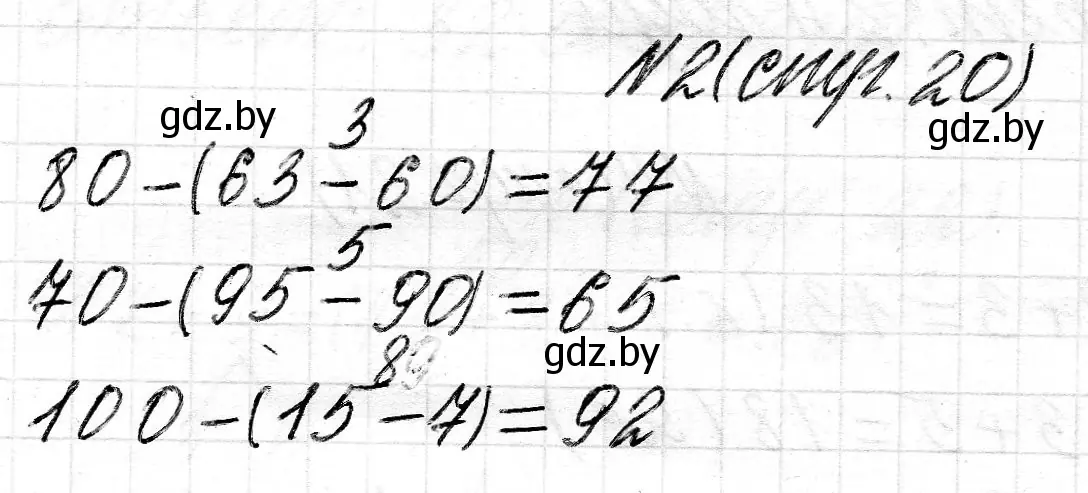 N2(стр.20)
gdz.by
gdz.by
3
80-(63-60)=77
5
70-(95-90)=65
gdz.by
8
100-(15-7)=92